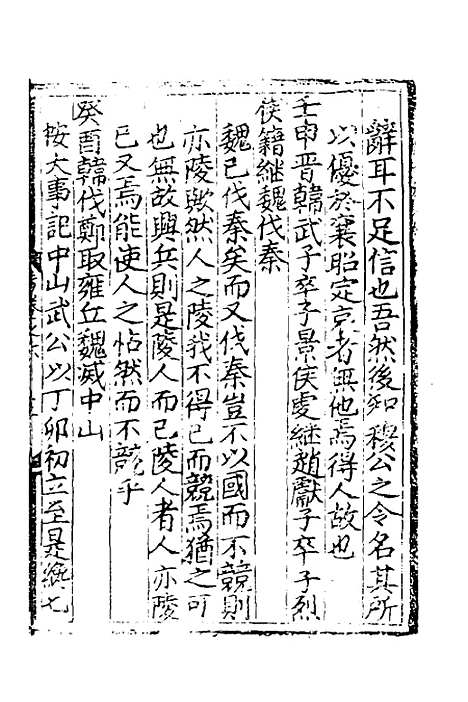 辭耳不足信也吾然後知穆公之令名其所
以優於襄昭定哀者無他焉得人故也
壬申晋韓武子卒子景侯虔継趙獻子卒子烈
侯籍継魏伐秦
魏已伐秦矣而又伐秦豈不以國而不競則
亦陵歟然人之陵我不得已而競焉猶之可
也無故興兵則是陵人而已陵人者人亦陵
已又焉能使人之怗然而不競乎
癸酉韓伐鄭取雍丘魏㓕中山
按大事記中山武公以丁卯初立至是纔七